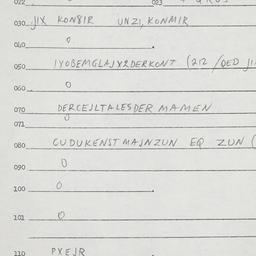 022 023
030 JIX KON8IR UNZI, KONMIR
040 0
050 IYOBEMGLAJX2DERKONT (212 /OED JI
060 0
070 DERCEJLTALESDER MAMEN
071 0
080 CUDUKENSTMAJNZUN EQ ZUN (
090 0
100 0
101 0
110 PXEJR